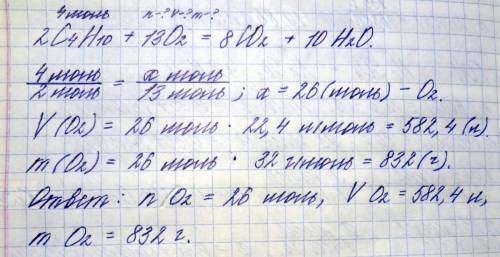 4 моль n-? V-? m-?
2C4H10 + 13O2 = 8CO2 + 10H2O.
4 моль / 2 моль = x моль / 13 моль ; x = 26 (моль) - O2.
V (O2) = 26 моль · 22,4 л/моль = 582,4 (л).
m (O2) = 26 моль · 32 г/моль = 832 (г).
Ответ: n O2 = 26 моль, V O2 = 582,4 л,
m O2 = 832 г.